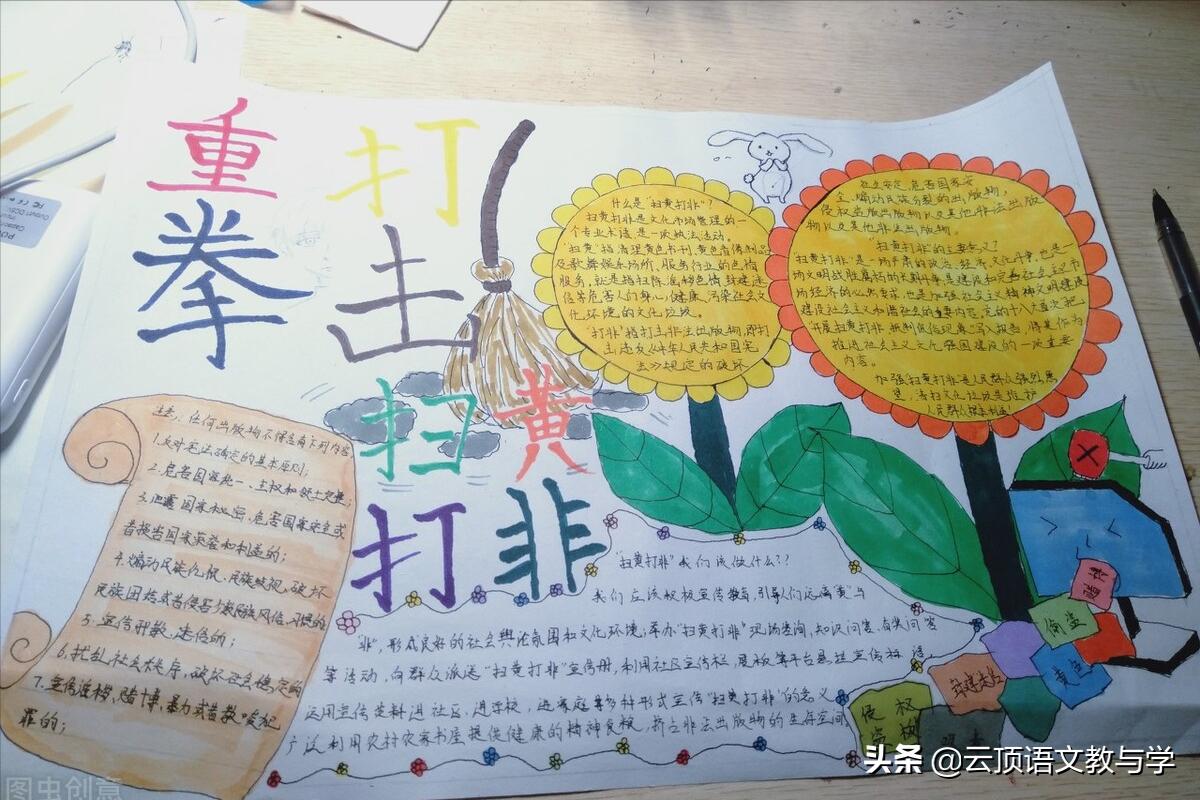 重拳
打击
扫黄
打非
什么是"扫黄打非"?
扫黄打非是文化市场管理的一
个专业术语,是一项执法活动。
及歌舞娱乐场所、服务行业的色情
信等危害人们身心健康、污染社会文
化环境的文化垃圾。
"打非"指打击非法出版物,即打
击违反《中华人民共和国宪
法》规定的破坏
社会安定、危害国家安
全、煽动民族分裂的出版物,
侵权盗版出版物以及其他非法出版
物以及其他非法出版物。
"扫黄打非"的主要意义?
扫黄打非"是一场严肃的政治、经济、文化斗争,也是一
场经济的必然要求,也是加强社会主义精神文明建设
建设社会主义和谐社会的重要内容,党的十八大首次把
"开展扫黄打非,抵制低俗现象"写入报告,将其作为
推进社会主义文化强国建设的一项重要
内容。
加强扫黄打非是人民群众强烈愿
望,清扫文化垃圾是维护
人民群众根本利益!
注意:任何出版物不得含有下列内容
1.反对宪法确定的基本原则;
2.危害国家统一、主权和领土完整;
3.泄露国家秘密、危害国家安全或
者损害国家荣誉和利益的;
4.煽动民族仇恨、民族歧视,破坏
民族团结或者侵害少数民族风俗、习惯的
5.宣传邪教、迷信的;
6.扰乱社会秩序,破坏社会稳定的
7.宣传淫秽,赌博,暴力或者教唆犯
罪的;
"扫黄打非"我们该做什么??
我们应该积极宣传教育,引导人们远离"黄"与
"非",形成良好的社会舆论氛围和文化环境,举办"扫黄打非"现场咨询,知识问答、有奖问答
等活动,向群众派送"扫黄打非"宣传册,利用社区宣传栏,展板等平台悬挂宣传标语,
运用宣传资料进社区、进学校,进家庭等多种形式宣传"扫黄打非"的意义
广泛利用农村农家书屋提供健康的精神食粮,挤占非法出版物的生存空间
赌博
偷盗
黄色
封建迷信
侵权
头条 @云顶语文教与学
图虫创意